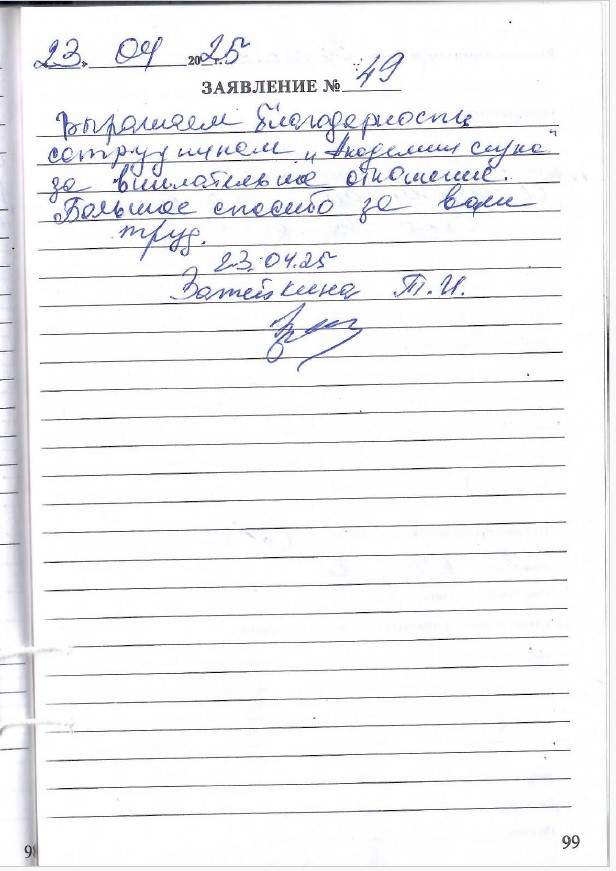 23. 04 2025
ЗАЯВЛЕНИЕ № 49
Выражаем благодарность
сотрудникам "Академия слуха"
за внимательное отношение.
Большое спасибо за ваш
труд.
23.04.25
Т.И.
98
99